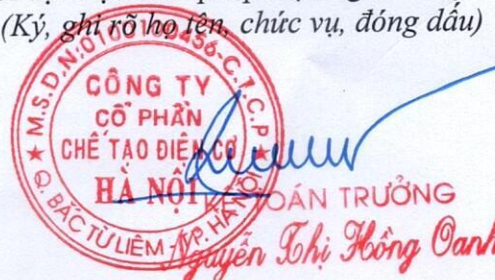 (Ký, ghi rõ họ tên, chức vụ, đóng dấu)
CÔNG TY
CỔ PHẦN
CHẾ TẠO ĐIỆN CƠ
HÀ NỘI
★ Q. BẮC TỪ LIÊM - TP. HÀ NỘI ★
KẾ TOÁN TRƯỞNG
Nguyễn Thị Hồng Oanh